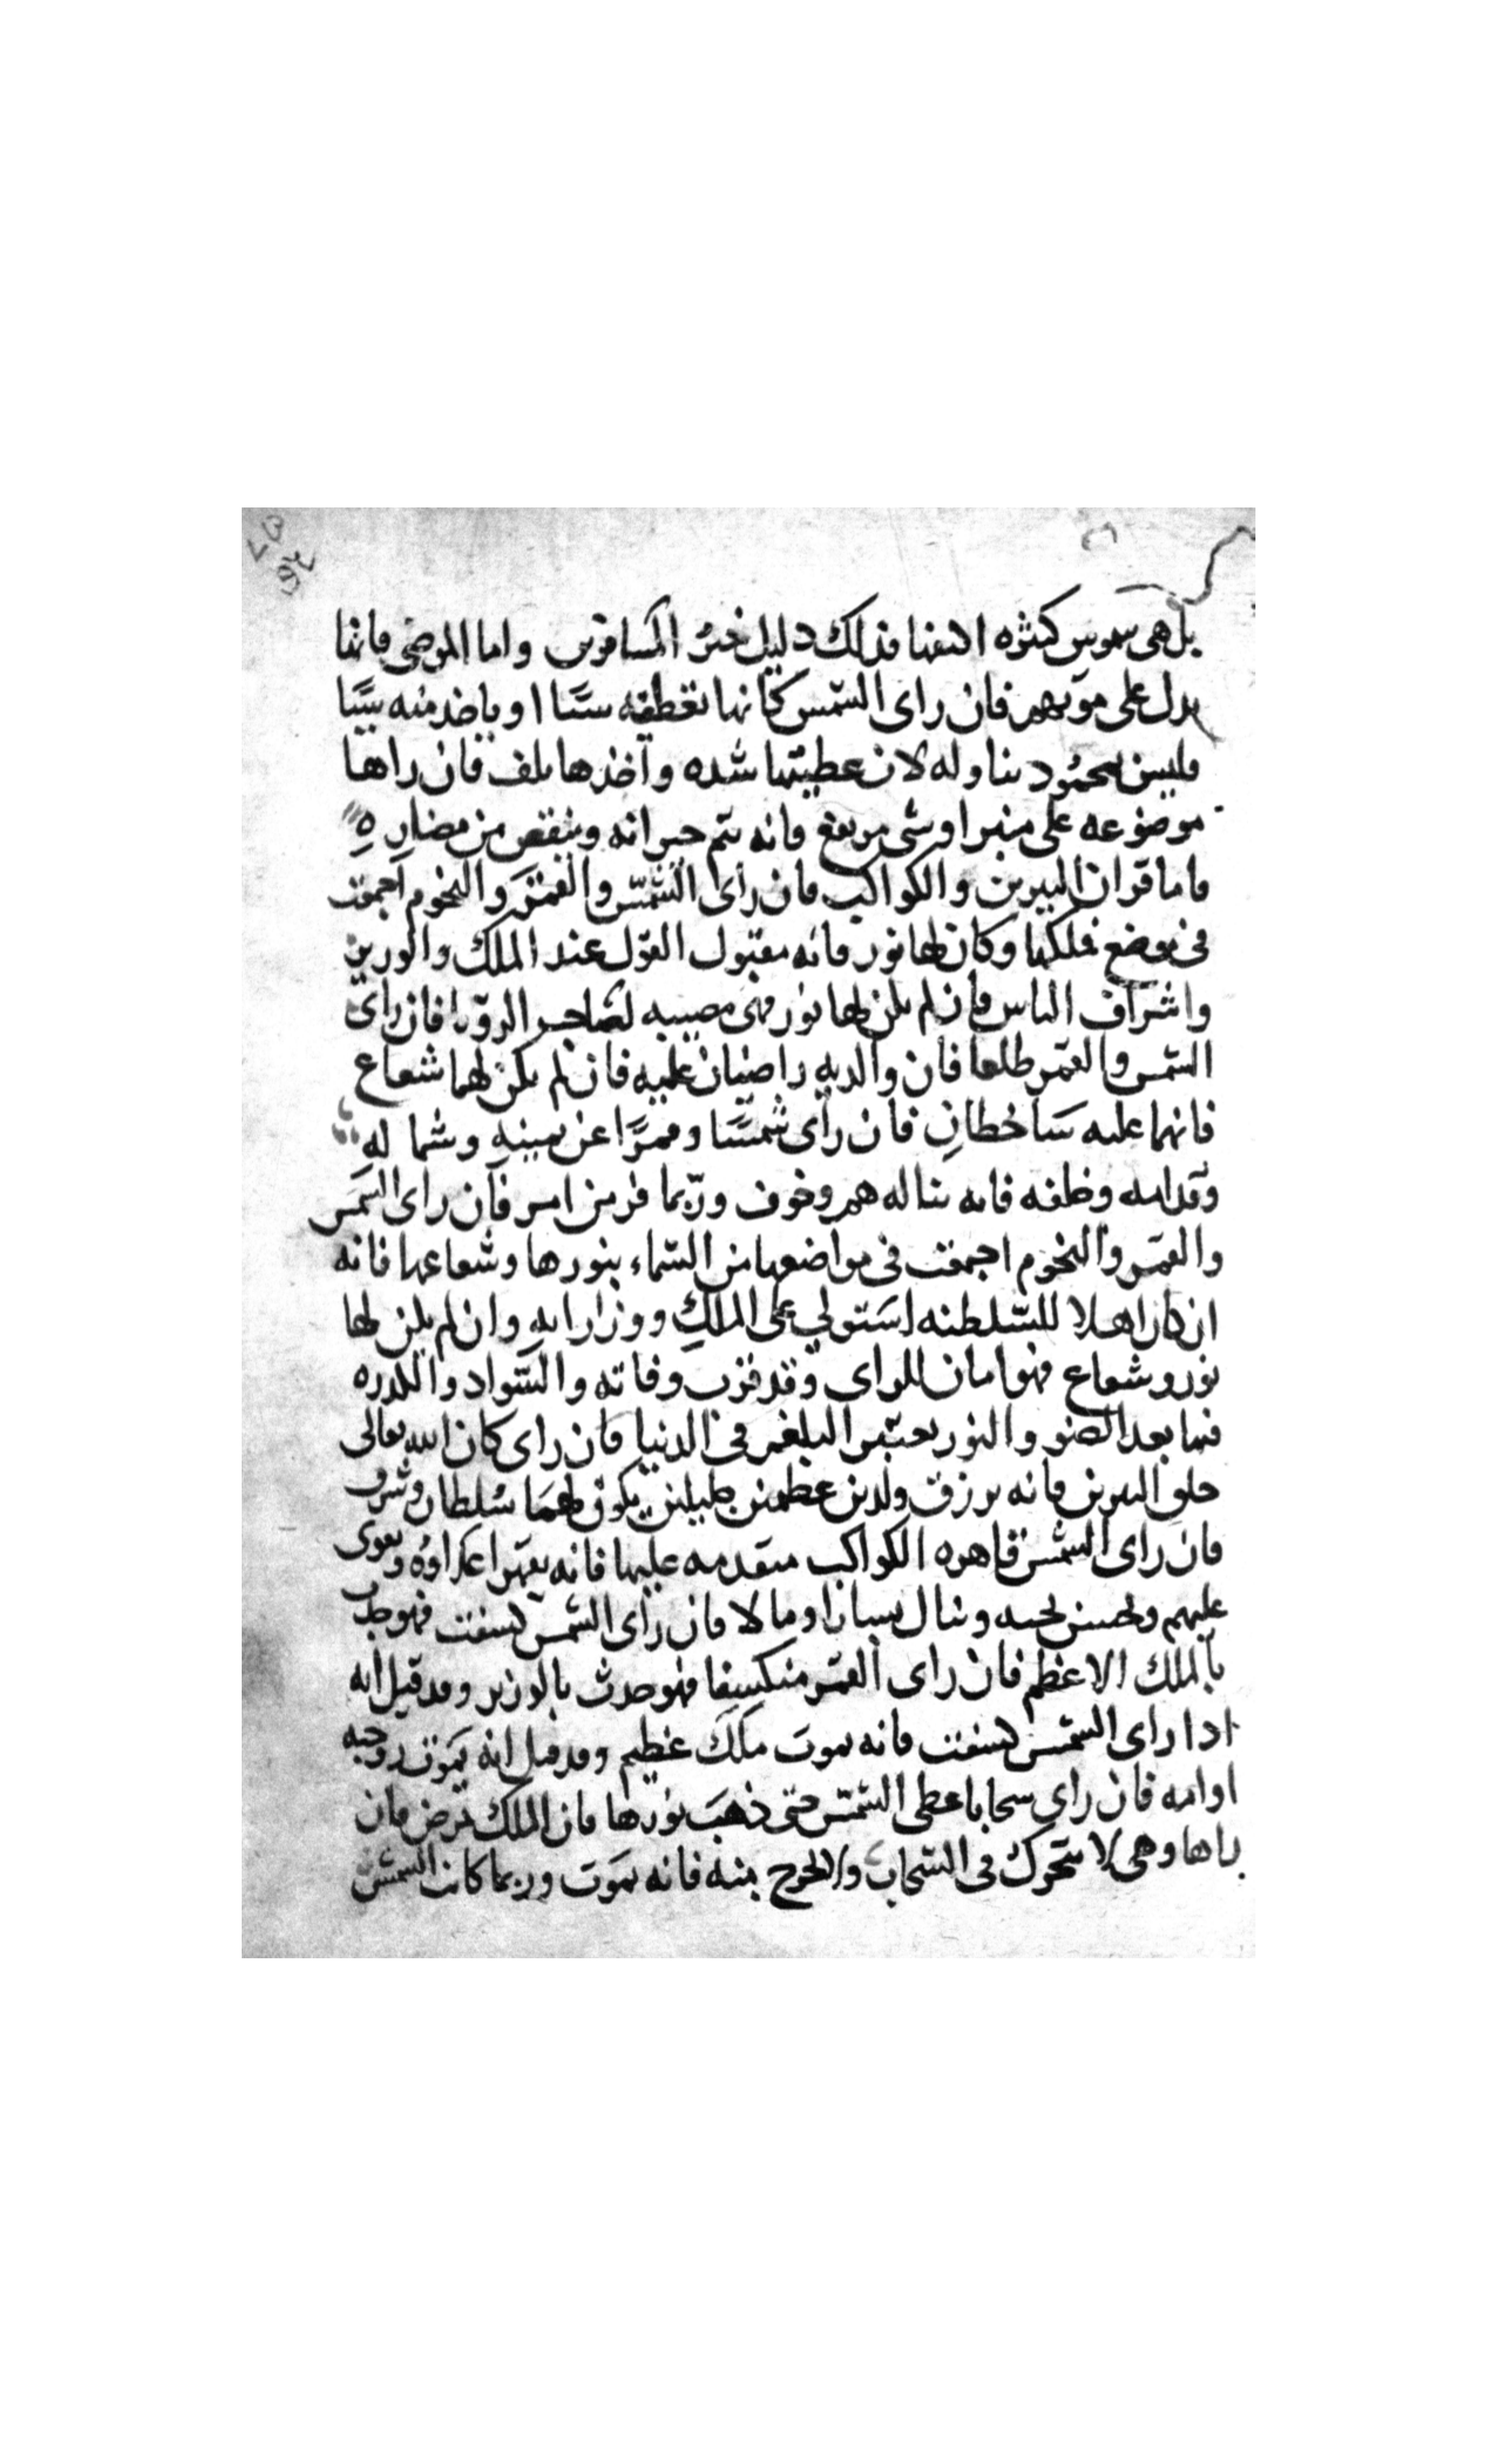 بل هي شموس كثيره فذلك دليل خير المسافرين واما المرضى فانها
يدل على موتهم فان راى الشمس كانها تعطيه شيًا او ياخذ منه شيًا
فليس بمحمود تناوله لان عطيتها شده واخذها تلف فان راها
موضوعه على منبر او شى مرتفع فانه يتم خيراته وينقص من مضاره
فاما قران النيرين والكواكب فان راى الشمس والقمر والنجوم اجتمعت
في موضع فملكها وكان لها نور فانه مقبول القول عند الملك والوزير
واشراف الناس فان لم يكن لها نور فهي مصيبه لصاحب الرويا فان راى
الشمس والقمر طلعا فان والديه راضيان عليه فان لم يكن لهما شعاع
فانهما عليه ساخطان فان راى شمسًا وقمرًا عن يمينه وشماله
وقدامه وخلفه فانه يناله هم وخوف وربما فر من امر فان راى الشمس
والقمر والنجوم اجتمعت في مواضعها من السماء بنورها وشعاعها فانه
ان كان اهلا للسلطنه استولى على الملك ووزارته وان لم يكن لها
نور وشعاع فهوا للراى وقد قرب وفاته والسواد والكدره
فيما بعد الضو والنور يعتبر في الدنيا فان راى كان الله تعالى
خلق النيرين فانه يرزق ولدين عظيمين جليلين يكون لهما سلطان وشرف
فان راى الشمس قاهره الكواكب متقدمه عليها فانه يقهر اعداوه ويقوى
عليهم وينال يسارا ومالا فان راى الشمس كسفت فهو حدث
بالملك الاعظم فان راى القمر منكسفا فهو حدث بالوزير وقد قيل انه
اذا راى الشمس كسفت فانه يموت ملك عظيم وقد قيل انه يموت زوجته
او امه فان راى سحابا غطى الشمس حتى ذهب نورها فان الملك يمرض فان
راها وهي لا تتحرك في السحاب ولا تخرج منه فانه يموت وربما كانت الشمس